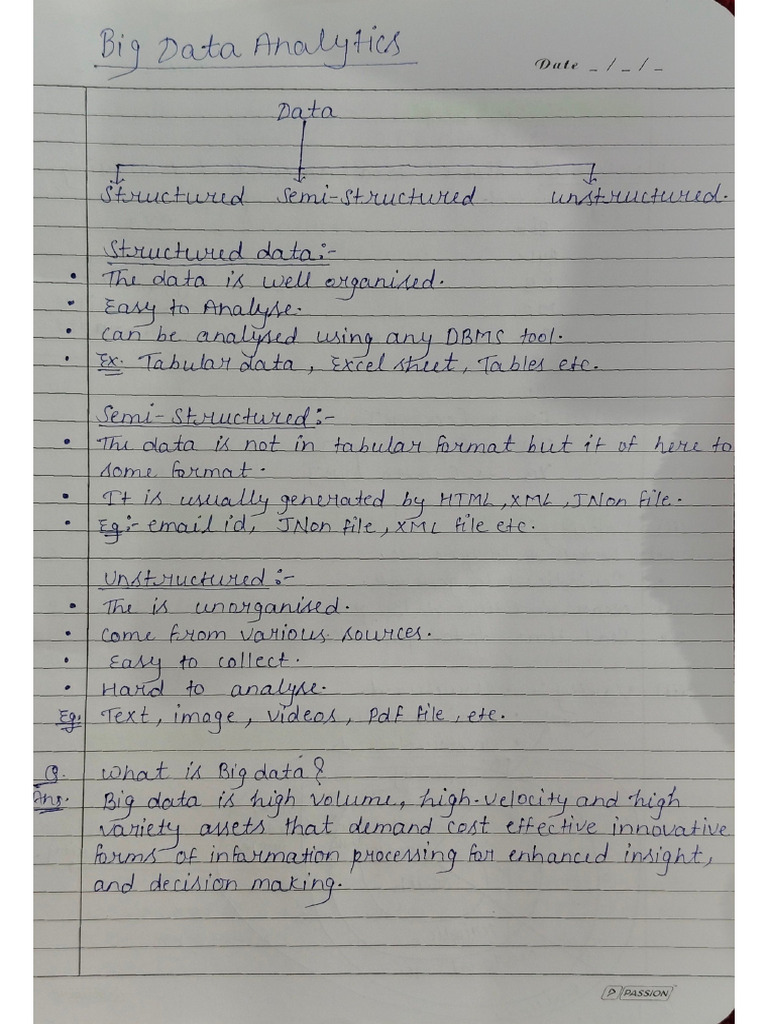 Big Data Analytics
Date _ / _ / _
Data
Structured Semi-Structured unstructured.
Structured data:-
• The data is well organised.
• Easy to Analyse.
• can be analysed using any DBMS tool.
• Ex. Tabular data, Excel sheet, Tables etc.
Semi-Structured:-
• The data is not in tabular format but it of here to
some format.
• It is usually generated by HTML, XML, JNon file.
• Eg:- email id, JNon file, XML file etc.
Unstructured:-
• The is unorganised.
• come from various sources.
• Easy to collect.
• Hard to analyse.
Eg. Text, image, videos, Pdf file, etc.
Q. What is Big data?
Ans. Big data is high volume, high-velocity and high
variety assets that demand cost effective innovative
forms of information processing for enhanced insight,
and decision making.
P PASSION